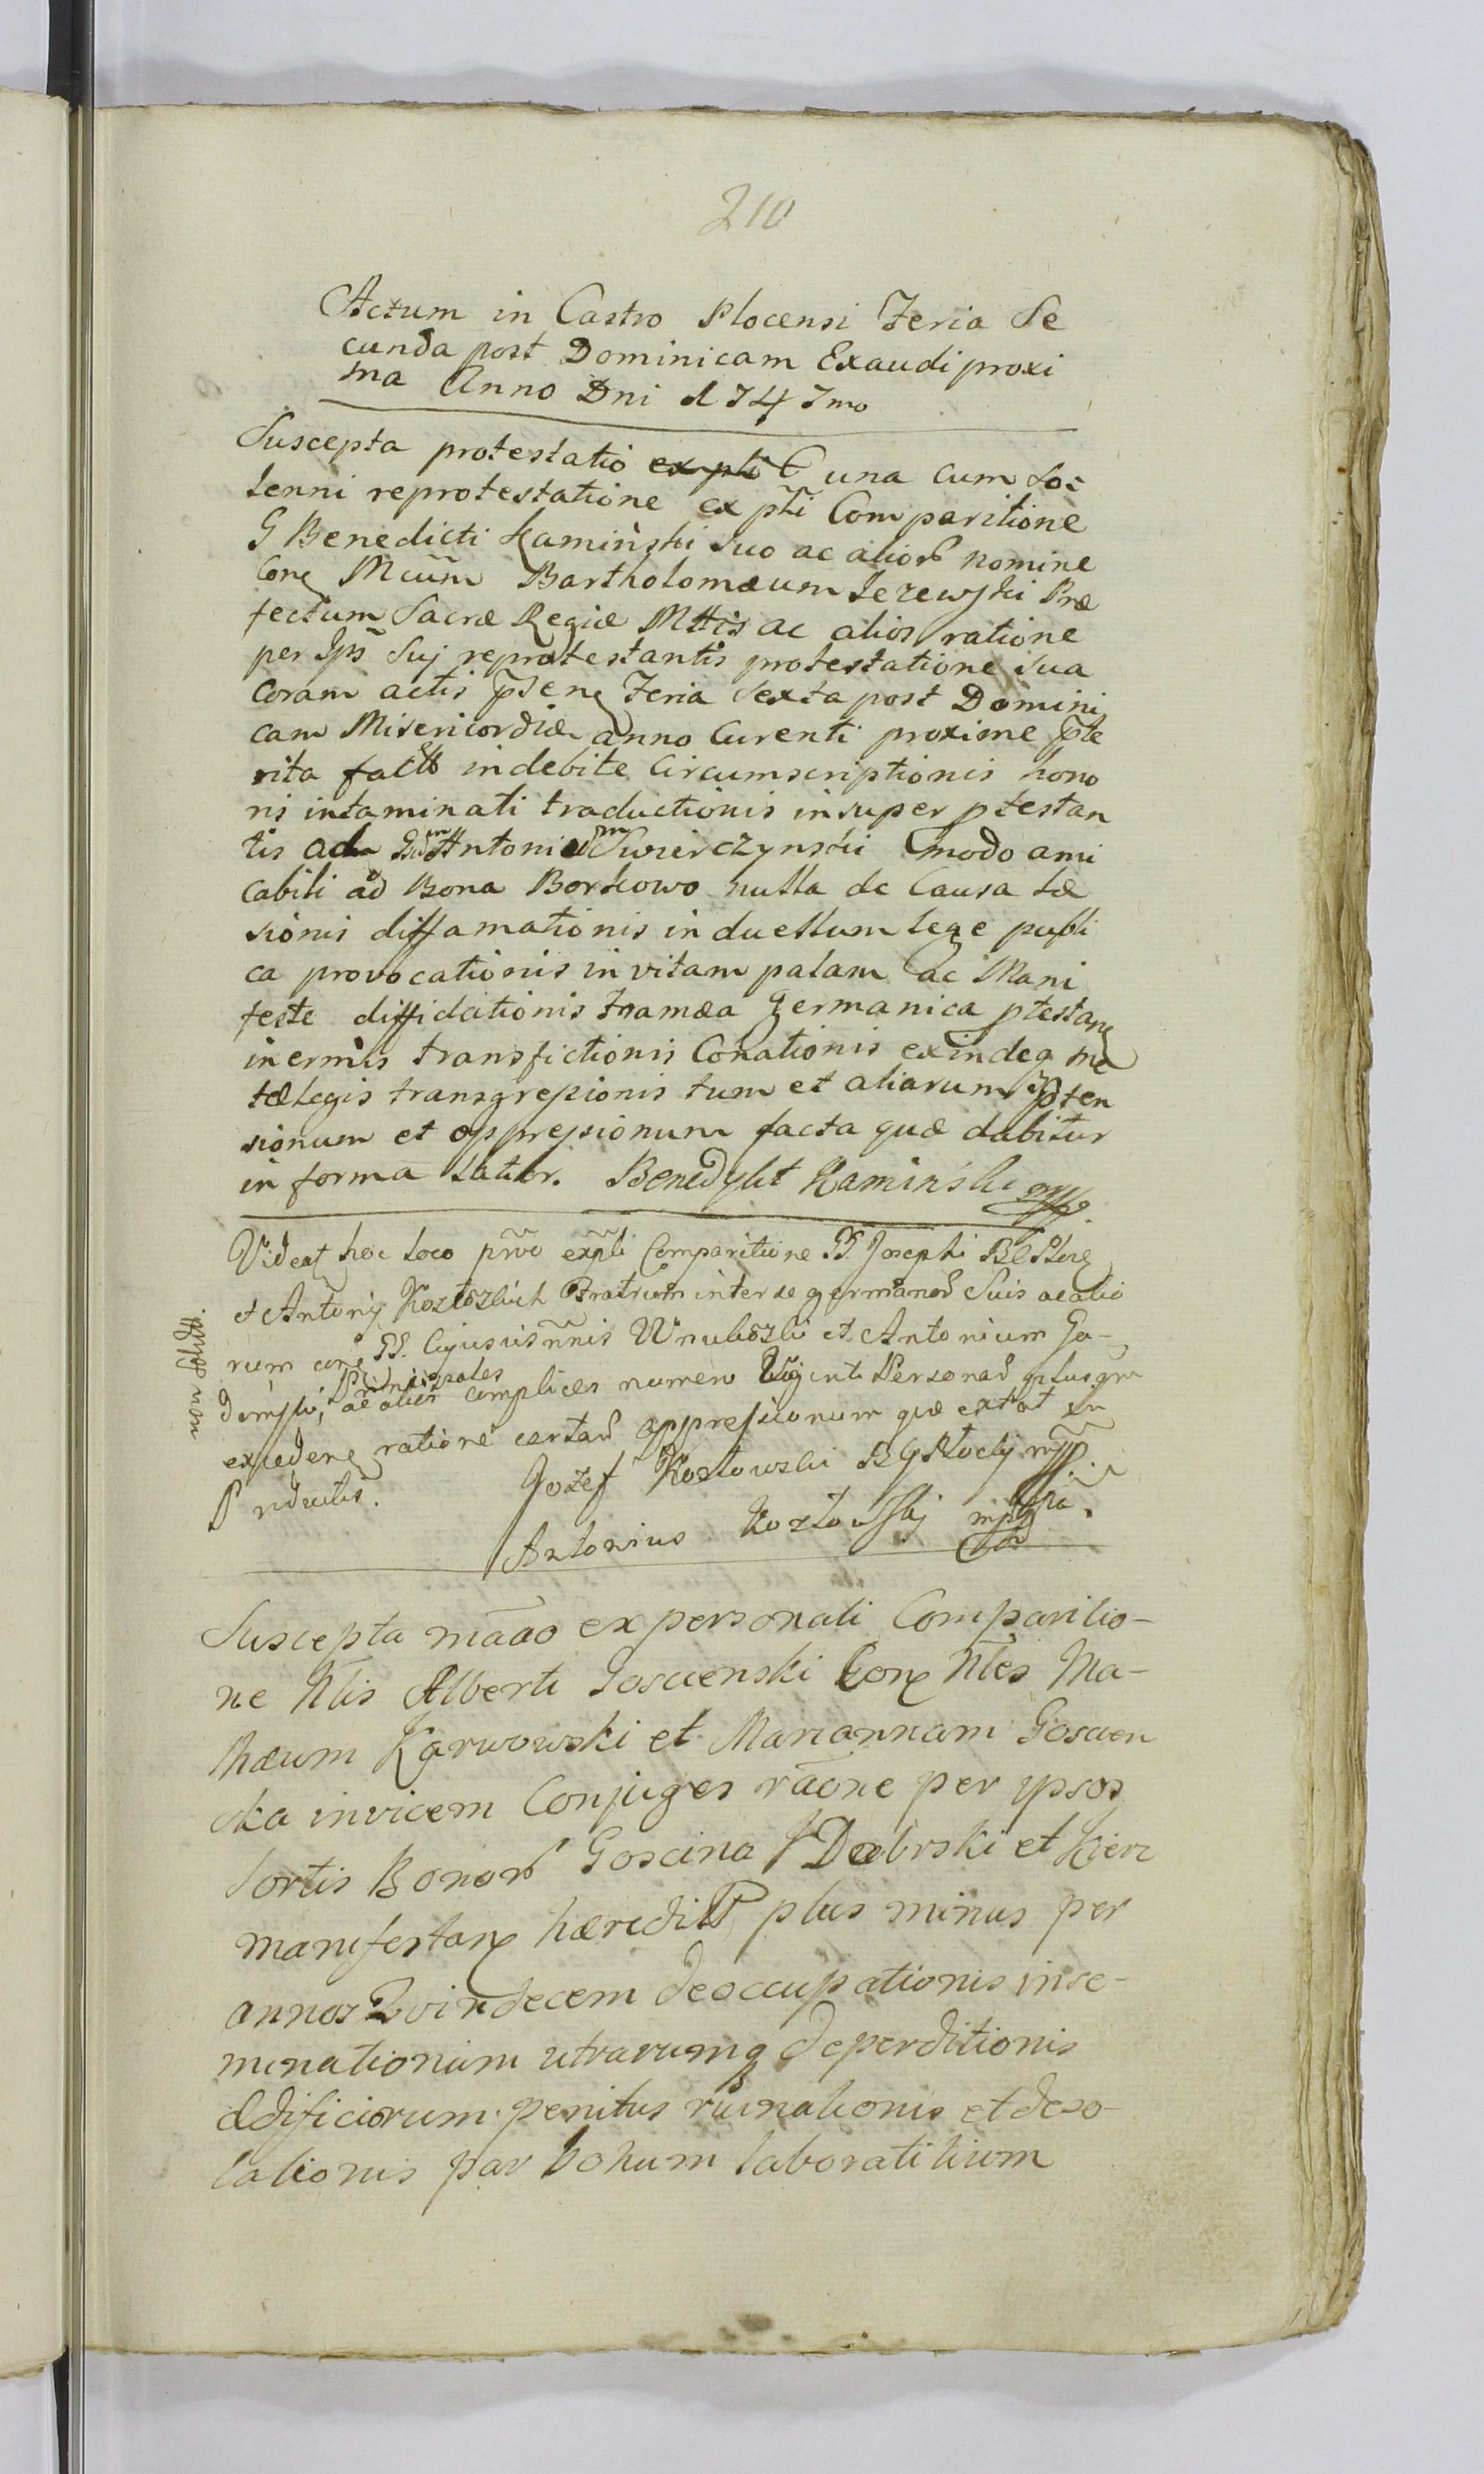 210
Actum in Castro Plocensi Feria Se
cunda post Dominicam Exaudi proxi
ma Anno Dni 1747mo
Suscepta protestatio ex pli una cum so
lenni reprotestatione ex pli Comparitione
G Benedicti Kamiński suo ac alior nomine
Con Mcum Bartholomæum Jezewski Præ
fectum Sacræ Regiæ Mttis ac alios ratione
per Ips Suj reprotestantis protestatione sua
Coram actis pt sen Feria Sexta post Domini
cam Misericordiæ anno Curenti proxime pte
rita fact indebite Circumscriptionis hono
ris intaminati traductionis insuper ptestan
tis ad Antoni Swierczynski modo ami
cabili ad Bona Borkowo nulla de Causa læ
sionis diffamationis in duellum lege publi
ca provocationis in vitam palam ac Mani
feste diffidationis framæa Germanica ptestan
inermis transfictionis Conationis exindeq
tæ legis transgressionis tum et aliarum pten
sionum et oppressionum facta quæ dabitur
in forma latior. Benedykt Kaminski mpp.
Videat hoc loco prvo expli Comparitione GG. Josephi
et Antonij Kozłowskich Fratrum inter se germanor Suis ac alio
rum con GG. et Antonium Ga-
Principales
ac alios complices numero Viginti Personar plus
non
exceden ratione certar oppressionum quæ extat in
P
Jozef Kozłowski mpp.
Antonius Kozłowskj mppa.
Suscepta maão ex personali Comparitio-
ne Nlis Alberti Goscienski Con Nles Ma-
thæum Karwowski et Mariannam Goscien
ska invicem Conjuges raone per ypsos
Sortis Bonor Goscina Dabrski et Kierz
manifestan hæredit plus minus per
annos Qvindecem deoccupationis inse-
minationum utrarumq deperditionis
ædificiorum penitus ruinationis et deso-
lationis par boũum laboratilium